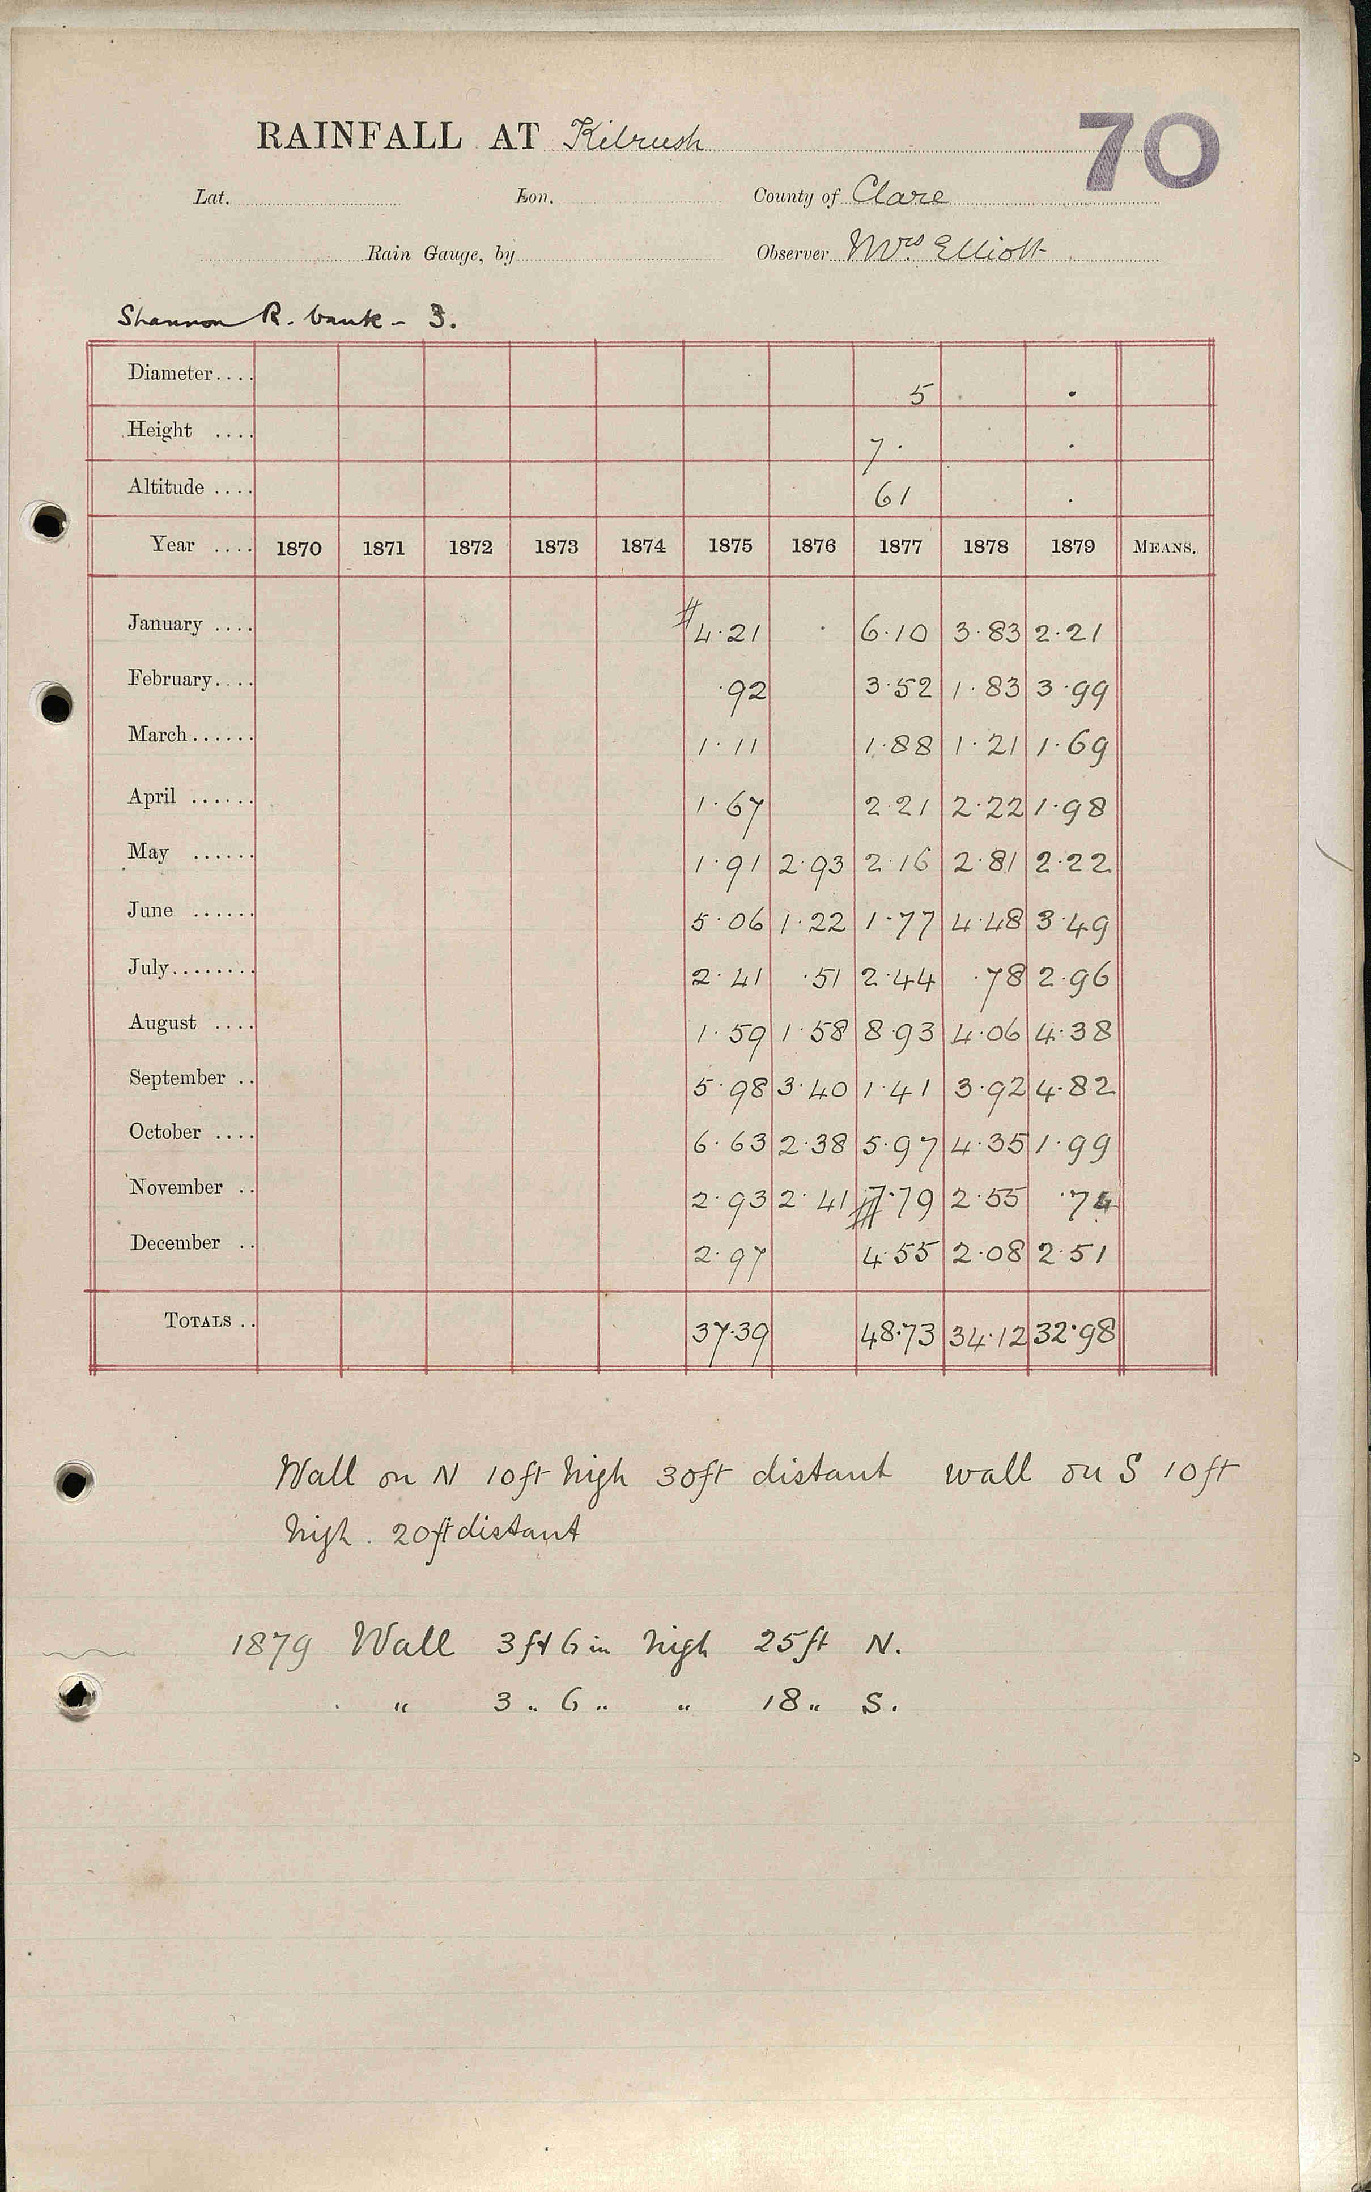 RAINFALL AT Kilrush 70
Lat. Lon. County of Clare
Rain Gauge, by Observer Mrs. Elliott
Shannon R. bank - 3.
Diameter.... 5 .
Height .... 7. .
Altitude .... 61 .
Year .... 1870 1871 1872 1873 1874 1875 1876 1877 1878 1879 MEANS.
January .... #4.21 . 6.10 3.83 2.21
February.... .92 3.52 1.83 3.99
March...... 1.11 1.88 1.21 1.69
April ...... 1.67 2.21 2.22 1.98
May ...... 1.91 2.93 2.16 2.81 2.22
June ...... 5.06 1.22 1.77 4.48 3.49
July........ 2.41 .51 2.44 .78 2.96
August .... 1.59 1.58 8.93 4.06 4.38
September .. 5.98 3.40 1.41 3.92 4.82
October .... 6.63 2.38 5.97 4.35 1.99
November .. 2.93 2.41 #7.79 2.55 .74
December .. 2.97 4.55 2.08 2.51
TOTALS .. 37.39 48.73 34.12 32.98
Wall on N 10ft high 30ft distant wall on S 10ft
high. 20ft distant
1879 Wall 3ft 6in high 25ft N.
" 3 " 6 " " 18 " S.